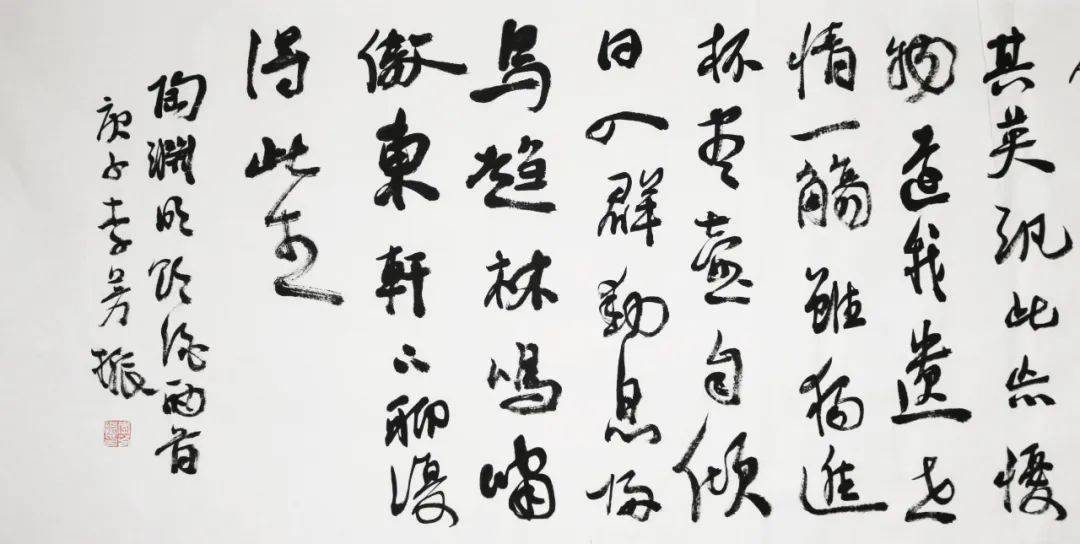 其英汎此忘憂
物遠我遺世
情一觴雖獨進
杯盡壺自傾
日入群動息歸
鳥趨林鳴嘯
傲東軒下聊復
得此生
陶淵明飲酒兩首
庚子李振